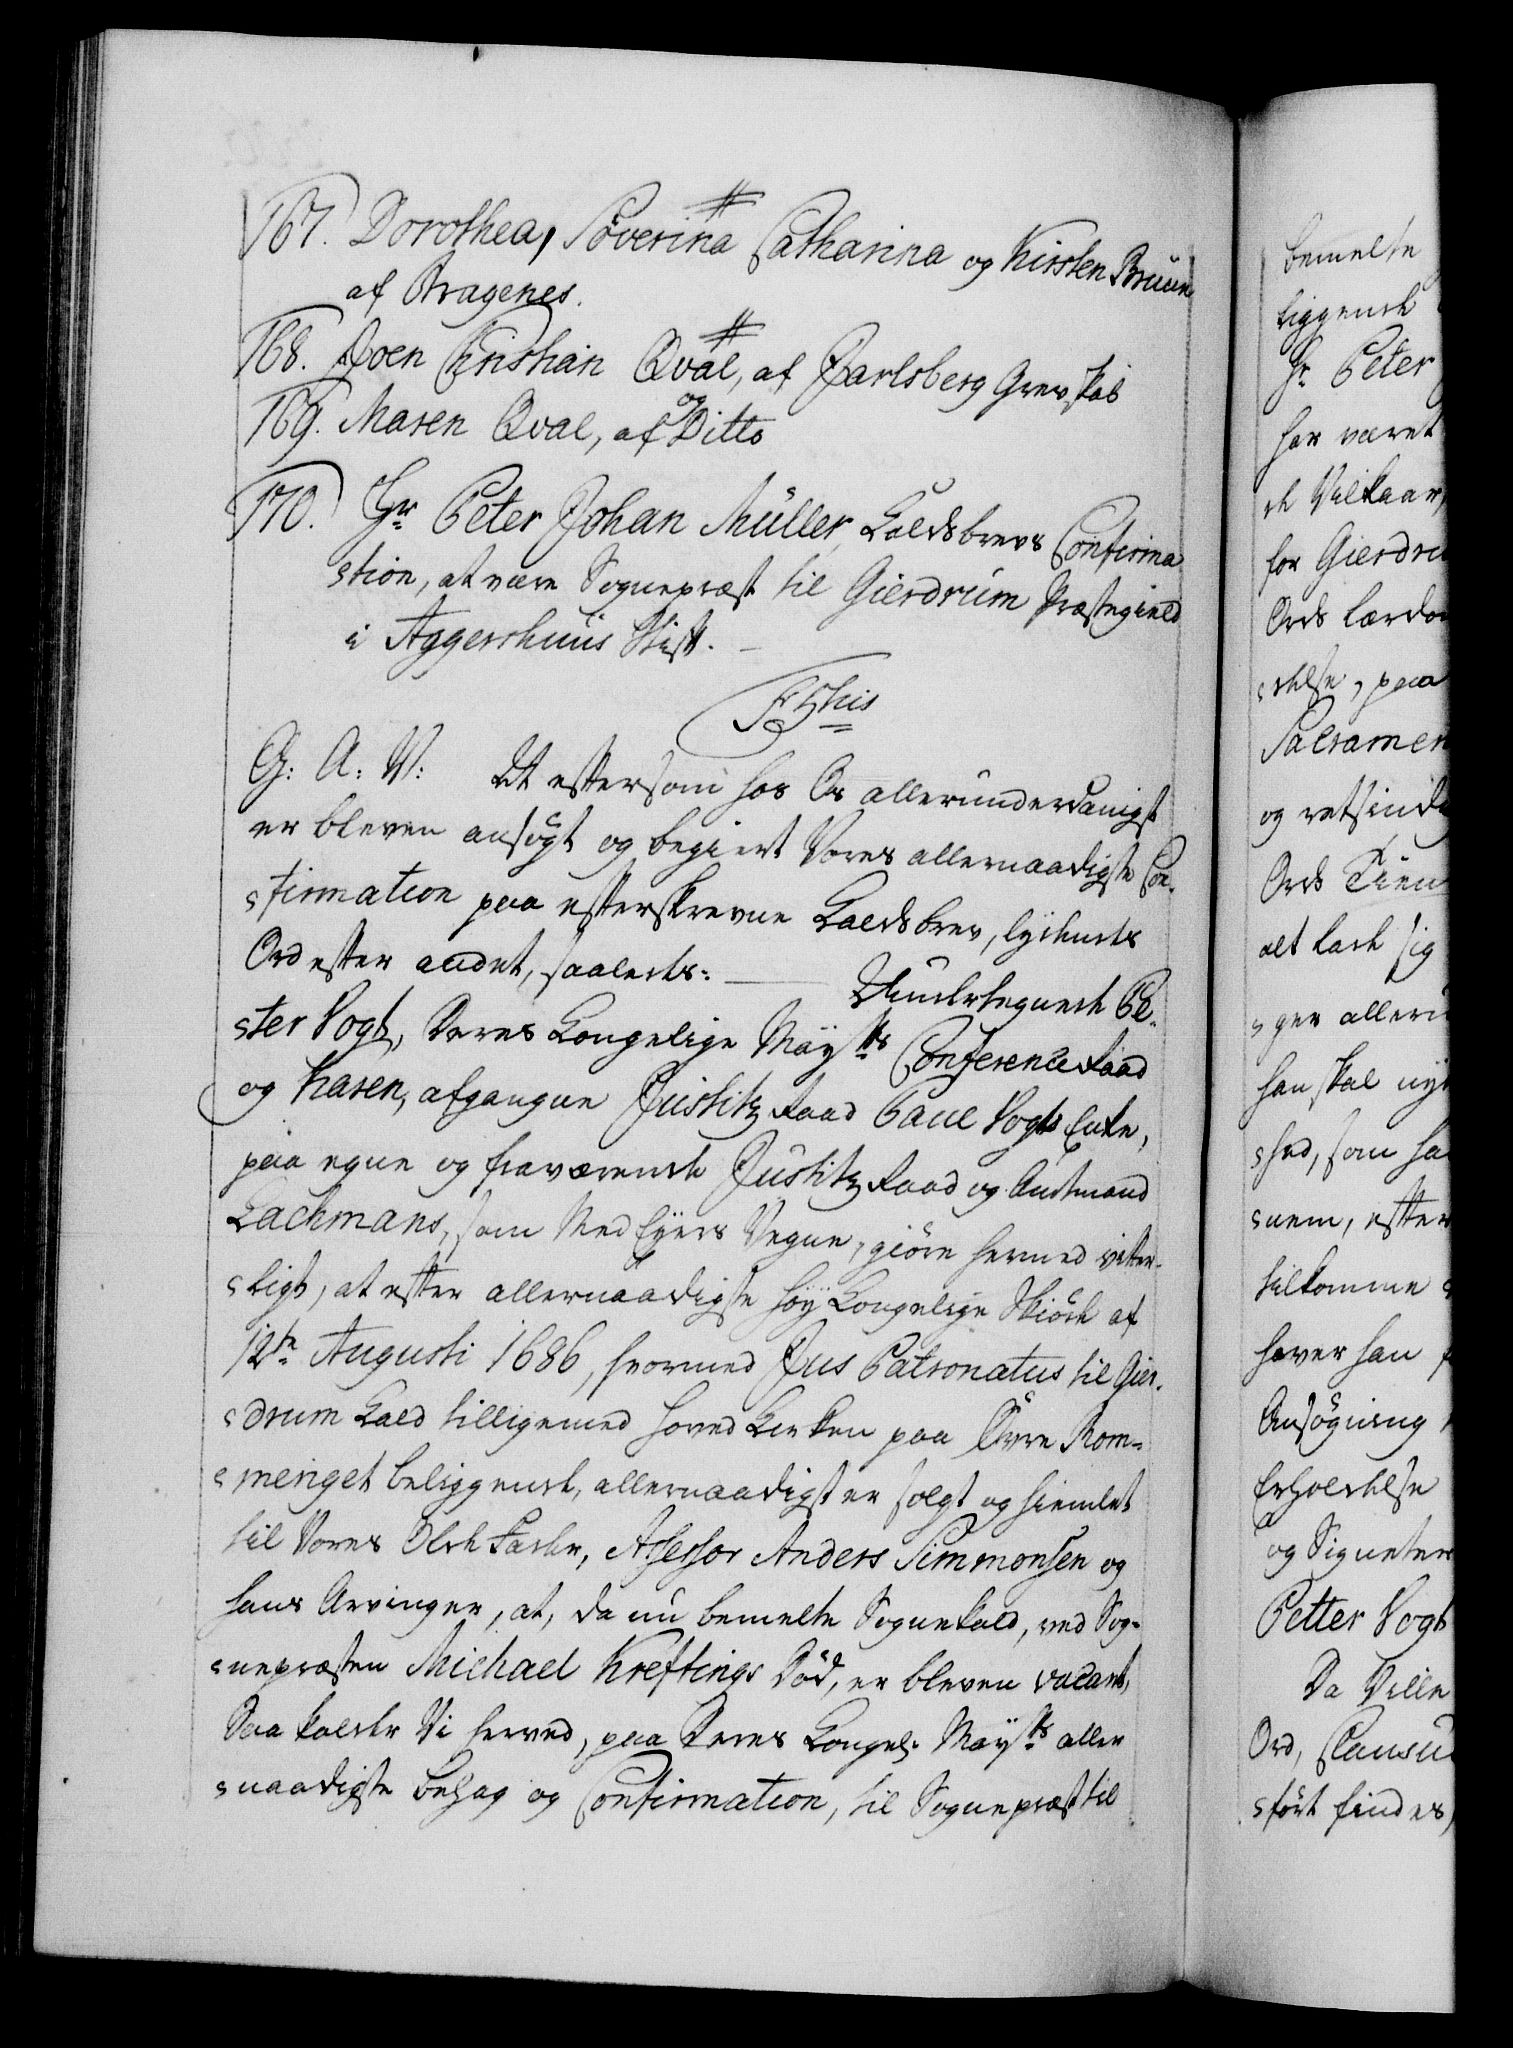 167. Dorothea, Söverina Catharina og Kirsten Bruun
af Bragenes.
168. Joen Christian Qval, af Jarlsberg Grevskab
169. Maren Qval, af Ditto og
170. Hr Peter Johan Müller, Kaldsbrevs Confirma
stion, at være Sognepræst til Gierdrum Præstegield
i Aggershuus Stift.
F 5this
G: A: V: At eftersom hos Os allerunderdanigst
er bleven ansögt og begiert Vores allernaadigste Con-
sfirmation paa efterskrevne Kaldsbrev, lydende
Ord efter andet, saaledes: Undertegnede Pe-
ster Vogt, Deres Kongelige Mayts Conference Raad
og Karen, afgangne Justitz Raad Paul Vogts Enke,
paa egne og fraværende Justitz Raad og Amtmand
Lachmans, som Med Eyers Vegne, giöre hermed vitter-
sligt, at efter allernaadigste höy Kongelige Skiöde af
12te Augusti 1686, hvormed Jus Patronatus til Gier-
sdrum Kald tilligemed Hoved Kirken paa Övre Rom-
smeriget beliggende, allernaadigst er solgt og hiemlet
til Vores Olde Fader, Assessor Anders Simmonsen og
hans Arvinger, at, da nu bemelte Sognekald, ved Sog-
snepræsten Michael Kreftings Död, er bleven vacant,
Saa kalder Vi herved, paa Deres Kongel. Mayts aller
snaadigste Behag og Confirmation, til Sognepræst til
bemelte
liggende
Hr Peter
har været
de Vilkaar,
for Gierdru
Ords Lærdom
sdelse, paa
Sacramen
og retsindig
Ords Tien
alt lade sig
sger alleru
han skal nyd
shed, som ha
snem, efter
tilkomme
haver han
Ansögning
Erholdelse
og Signeter
Petter Vogt
Da Ville
Ord, Clausu
sfört findes,